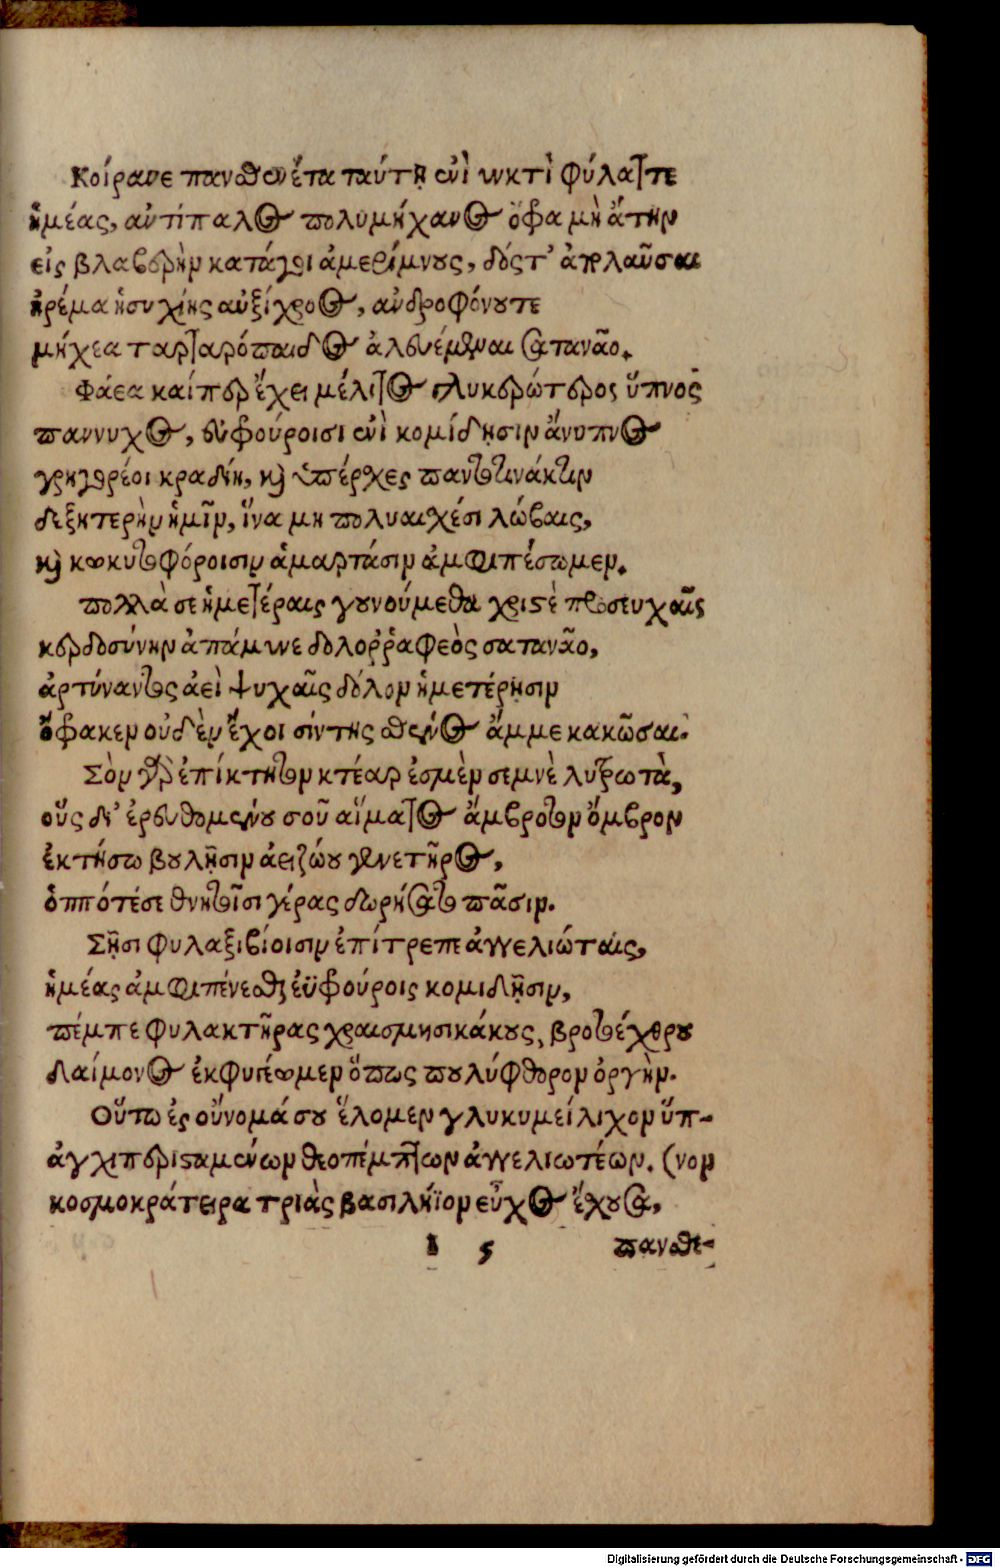 Κοίρανε πανσθενέτα ταύτῃ ἐνὶ νυκτὶ φύλαττε
ἡμέας, ἀντίπαλος πολυμήχανος ὄφρα μὴ ἄτην
εἰς βλαβερὴν κατάγοι ἀμερίμνους, δός τ' ἀπολαῦσαι
ἠρέμα ἡσυχίης αὐξίχροος, ἀνδροφόνου τε
μήχεα ταρταρόπαιδος ἀλευέμεναι σατανᾶο.
Φάεα καίπερ ἔχει μέλιτος γλυκερώτερος ὕπνος
παννυχος, εὐφρούροισι ἐνὶ κομίδῃσιν ἄνυπνος
γρηγορέοι κραδίη, καὶ ὑπέρχες παντοτινάκτην
δεξητερὴν ἡμῖν, ἵνα μη πολυαιχέσι λώβαις,
καὶ κωκυτοφόροισιν ἁμαρτάσιν ἀμφιπέσωμεν.
πολλὰ σε ἡμετέραις γουνούμεθα χριστὲ προσευχαῖς
κερδοσύνην ἀπάμυνε δολορῥαφεὸς σατανᾶο,
ἀρτύναντος ἀεὶ ψυχαῖς δόλον ἡμετέρῃσιν
ὄφρακεν οὐδὲν ἔχοι σίντης σθένος ἄμμε κακῶσαι.
Σὸν γὰρ ἐπίκτητον κτέαρ ἐσμὲν σεμνὲ λυτρωτὰ,
οὕς δι' ἐρευθομένου σοῦ αἵματος ἄμβροτον ὄμβρον
ἐκτήσω βουλῇσιν ἀειζώου γενετῆρος,
ὁππότέ σε θνητοῖσι γέρας δωρήσατο πᾶσιν.
Σῇσι φυλαξιβίοισιν ἐπίτρεπε ἀγγελιώταις,
ἡμέας ἀμφιπένεσθαι ἐϋφρούροις κομιδῇσιν,
πέμπε φυλακτῆρας χραισμησικάκους, βροτοέχθρου
δαίμονος ἐκφυγέωμεν ὅπως πουλύφθορον ὀργὴν.
Οὕτω ἐς οὔνομά σου ἕλομεν γλυκυμείλιχον ὕπ-
ἀγχιπεριςαμένων θεοπέμπτων ἀγγελιωτέων. (νον
κοσμοκράτειρα τριὰς βασιλήϊον εὖχος ἔχουσα,
I 5 πανσθε-
Digitalisierung gefördert durch die Deutsche Forschungsgemeinschaft - DFG